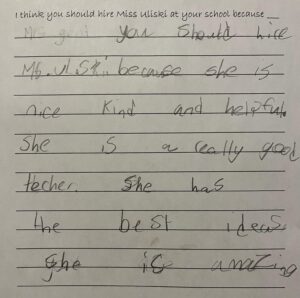 I think you should hire Miss Uliski at your school because __
you should hire
Ms. Uliski because she is
nice kind and helpful.
She is a really good
techer. She has
the best ideas
She is amazing